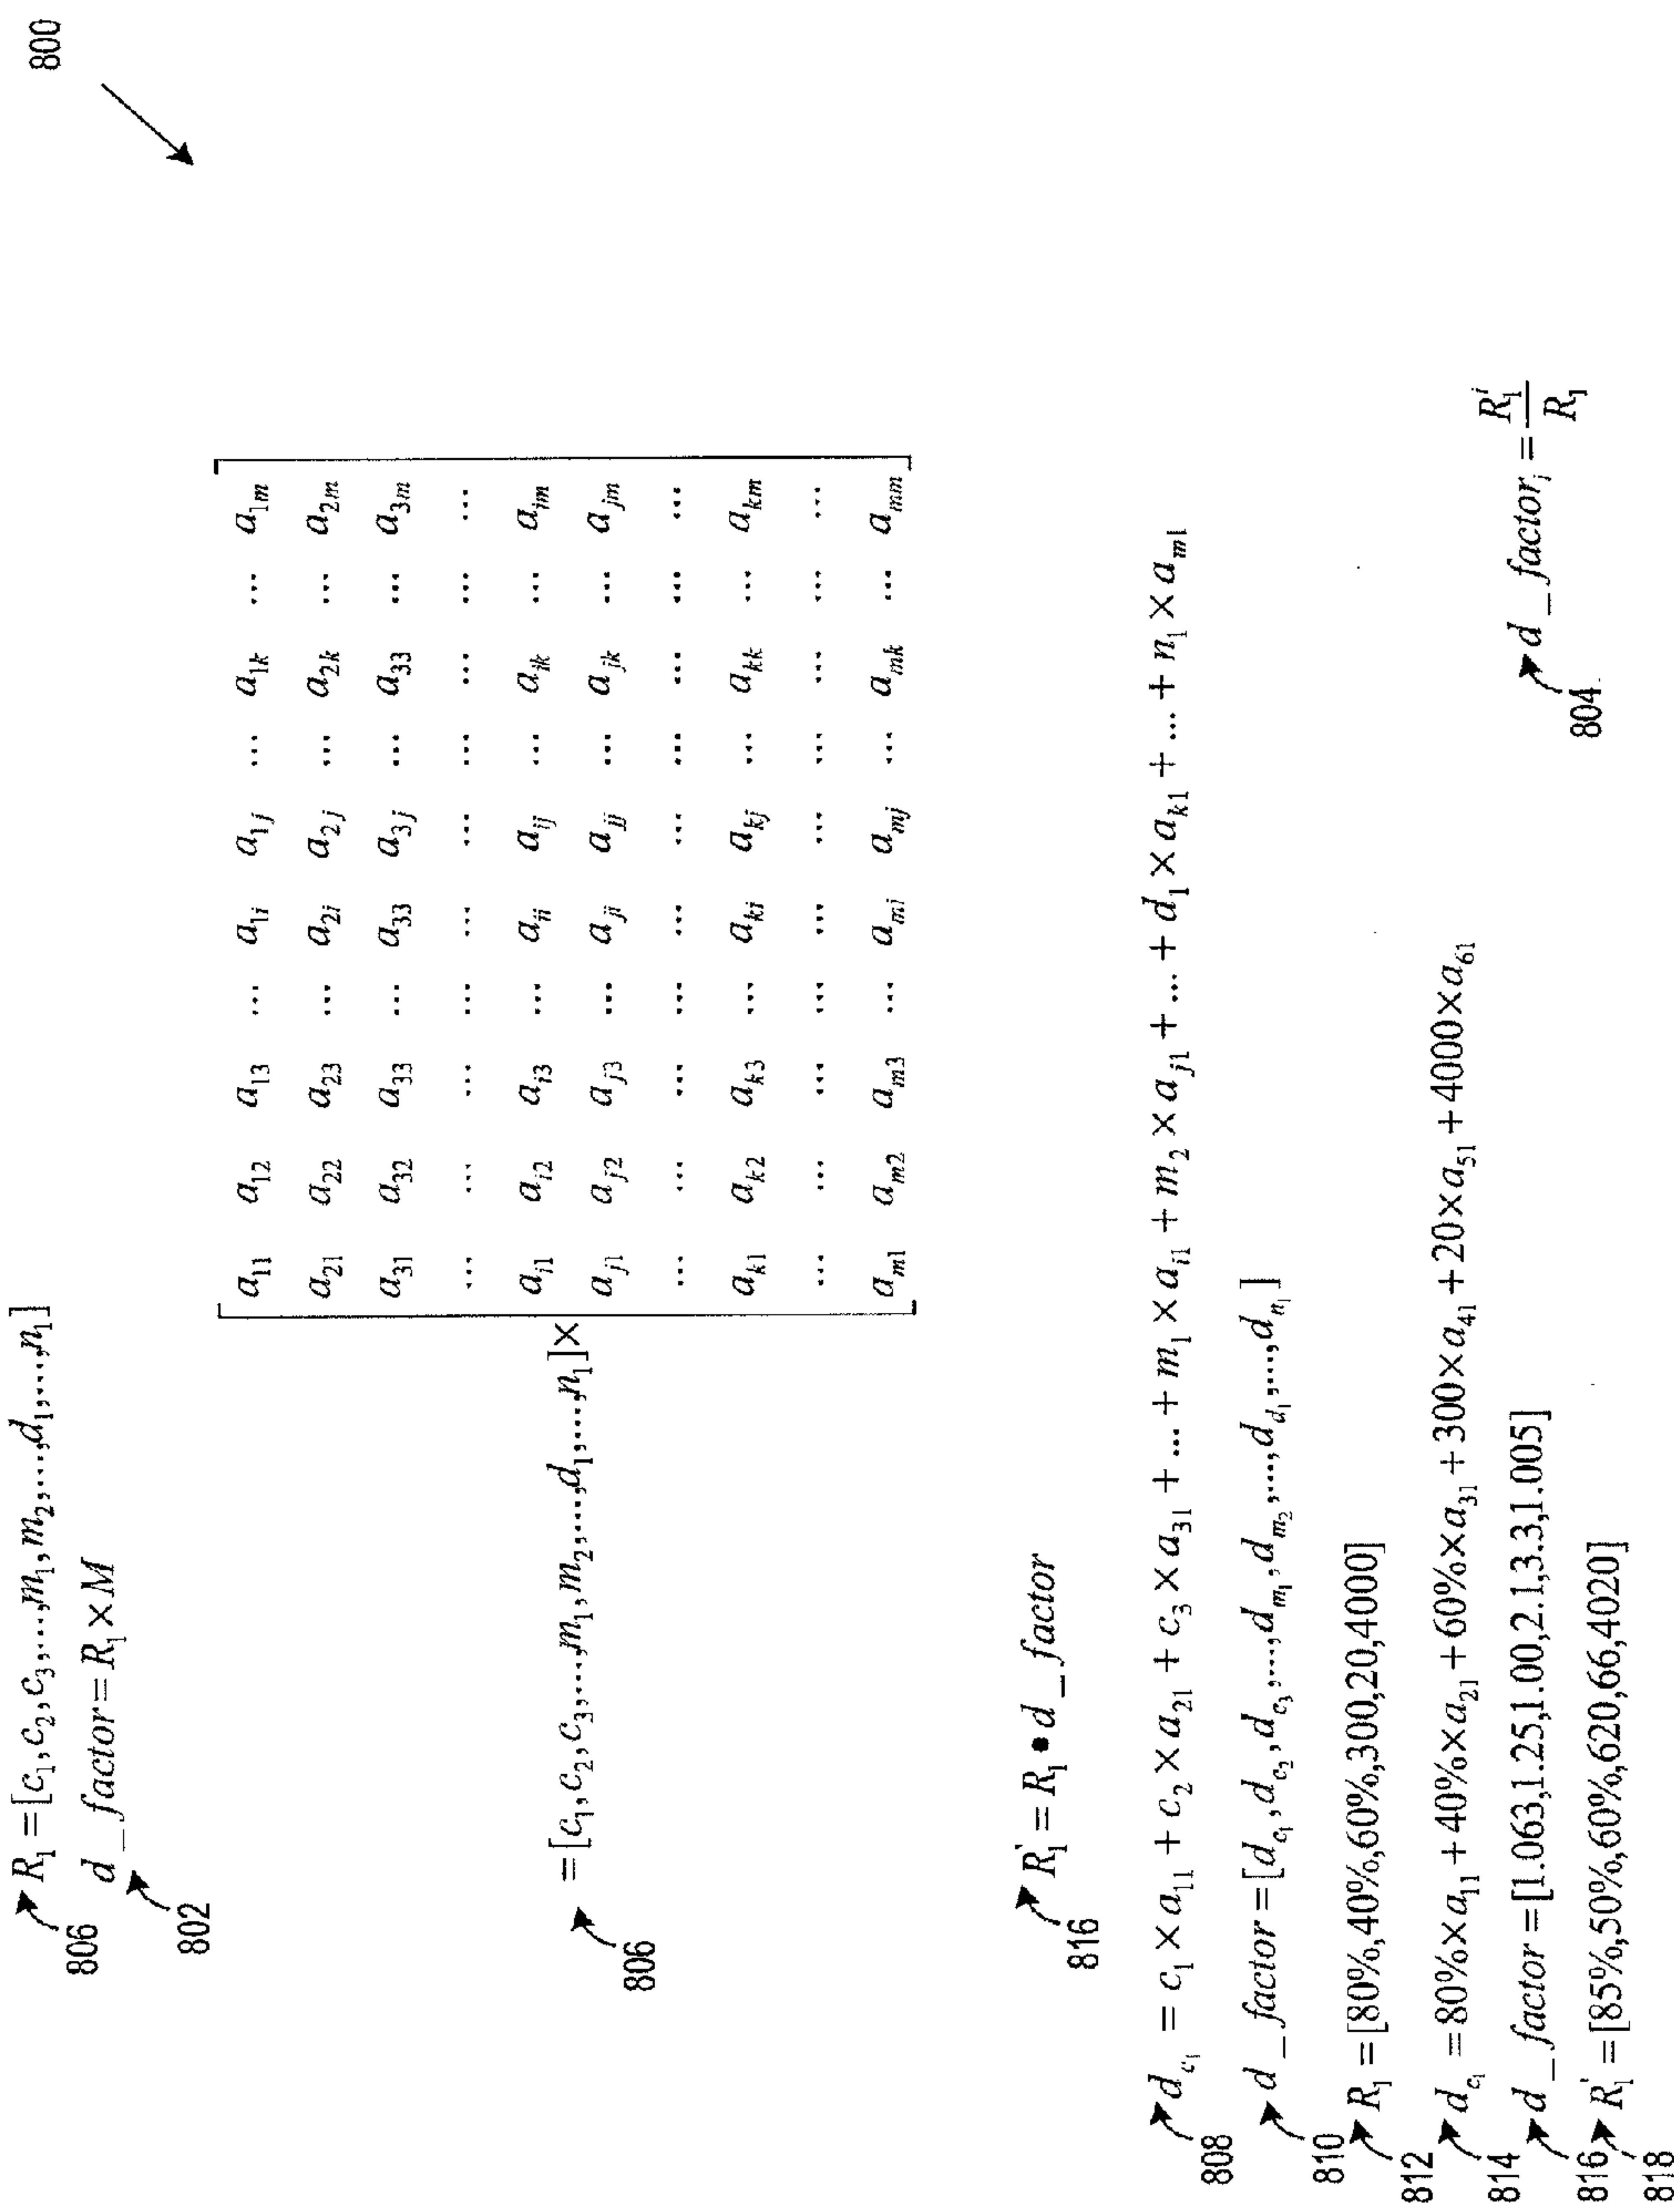 800
806 R₁ = [c₁,c₂,c₃,...,m₁,m₂,...,d₁,...,n₁]
802 d_factor = R₁ × M
806 = [c₁,c₂,c₃,...,m₁,m₂,...,d₁,...,n₁] ×
a₁₁ a₁₂ a₁₃ ... a₁ᵢ a₁ⱼ ... a₁ₖ ... a₁ₘ
a₂₁ a₂₂ a₂₃ ... a₂ᵢ a₂ⱼ ... a₂ₖ ... a₂ₘ
a₃₁ a₃₂ a₃₃ ... a₃₃ a₃ⱼ ... a₃₃ ... a₃ₘ
... ... ... ... ... ... ... ... ... ...
aᵢ₁ aᵢ₂ aᵢ₃ ... aᵢᵢ aᵢⱼ ... aᵢₖ ... aᵢₘ
aⱼ₁ aⱼ₂ aⱼ₃ ... aⱼᵢ aⱼⱼ ... aⱼₖ ... aⱼₘ
... ... ... ... ... ... ... ... ... ...
aₖ₁ aₖ₂ aₖ₃ ... aₖᵢ aₖⱼ ... aₖₖ ... aₖₘ
... ... ... ... ... ... ... ... ... ...
aₘ₁ aₘ₂ aₘ₃ ... aₘᵢ aₘⱼ ... aₘₖ ... aₘₘ
816 R₁' = R₁ • d_factor
808 d_c₁ = c₁ × a₁₁ + c₂ × a₂₁ + c₃ × a₃₁ + ... + m₁ × aᵢ₁ + m₂ × aⱼ₁ + ... + d₁ × aₖ₁ + ... + n₁ × aₘ₁
810 d_factor = [d_c₁,d_c₂,d_c₃,...,d_m₁,d_m₂,...,d_d₁,...,d_n₁]
812 R₁ = [80%,40%,60%,300,20,4000]
814 d_c₁ = 80%×a₁₁ + 40%×a₂₁ + 60%×a₃₁ + 300×a₄₁ + 20×a₅₁ + 4000×a₆₁
816 d_factor = [1.063,1.25,1.00,2.1,3.3,1.005]
804 d_factorᵢ = R₁ⁱ / R₁
818 R₁' = [85%,50%,60%,620,66,4020]